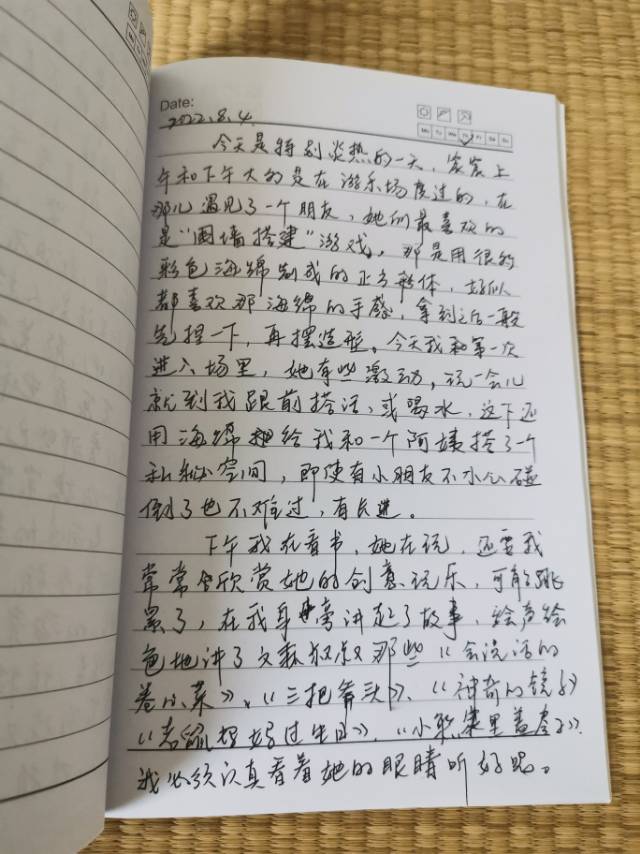 Date:
2022.8.4.
Mo Tu We Th Fr Sa Su
今天是特别炎热的一天,安安上
午和下午大多是在游乐场度过的,在
那儿遇见了一个朋友,她们最喜欢的
是“围墙搭建”游戏。那是用很多
彩色海绵制成的正方形体,好似
都喜欢那海绵的手感,拿到之后一般
先捏一下,再摆造型。今天我和第一次
进入场里,她有些激动。玩一会儿
就到我跟前搭话,或喝水,这下还
用海绵给我和一个阿姨搭了一个
私秘空间,即使有小朋友不小心碰
倒了也不难过,有长进。
下午我在看书,她在玩,还要我
常常欣赏她的创意玩乐,可能跳
累了,在我身旁讲起了故事,绘声绘
色地讲了文森叔叔那些《会说话的
卷心菜》、《三把斧头》、《神奇的镜子》
过生日》,《小熊家里盖房子》.
我必须认真看着她的眼睛听好呢。